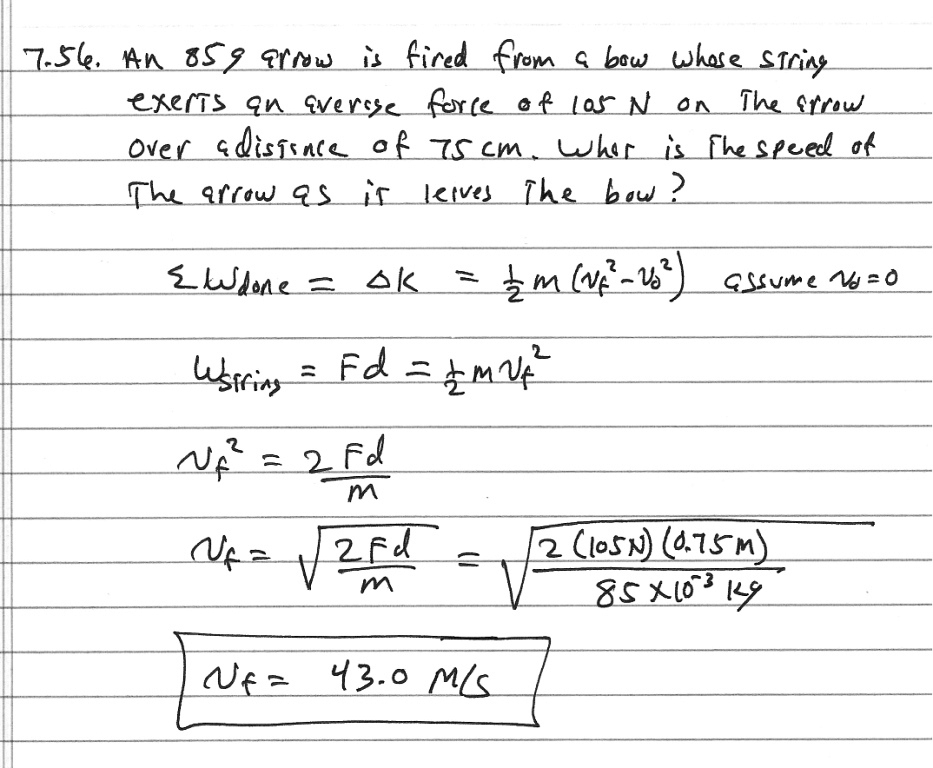 7.56. An 85g arrow is fired from a bow whose string
exerts an average force of 105 N on the arrow
over a distance of 75 cm. What is the speed of
the arrow as it leaves the bow?
ΣWdone = ΔK = 1/2 m (vf² - v0²) assume v0 = 0
Wstring = Fd = 1/2 m vf²
vf² = 2Fd/m
vf = √(2Fd/m) = √(2(105N)(0.75m)/(85×10⁻³ kg))
vf = 43.0 m/s